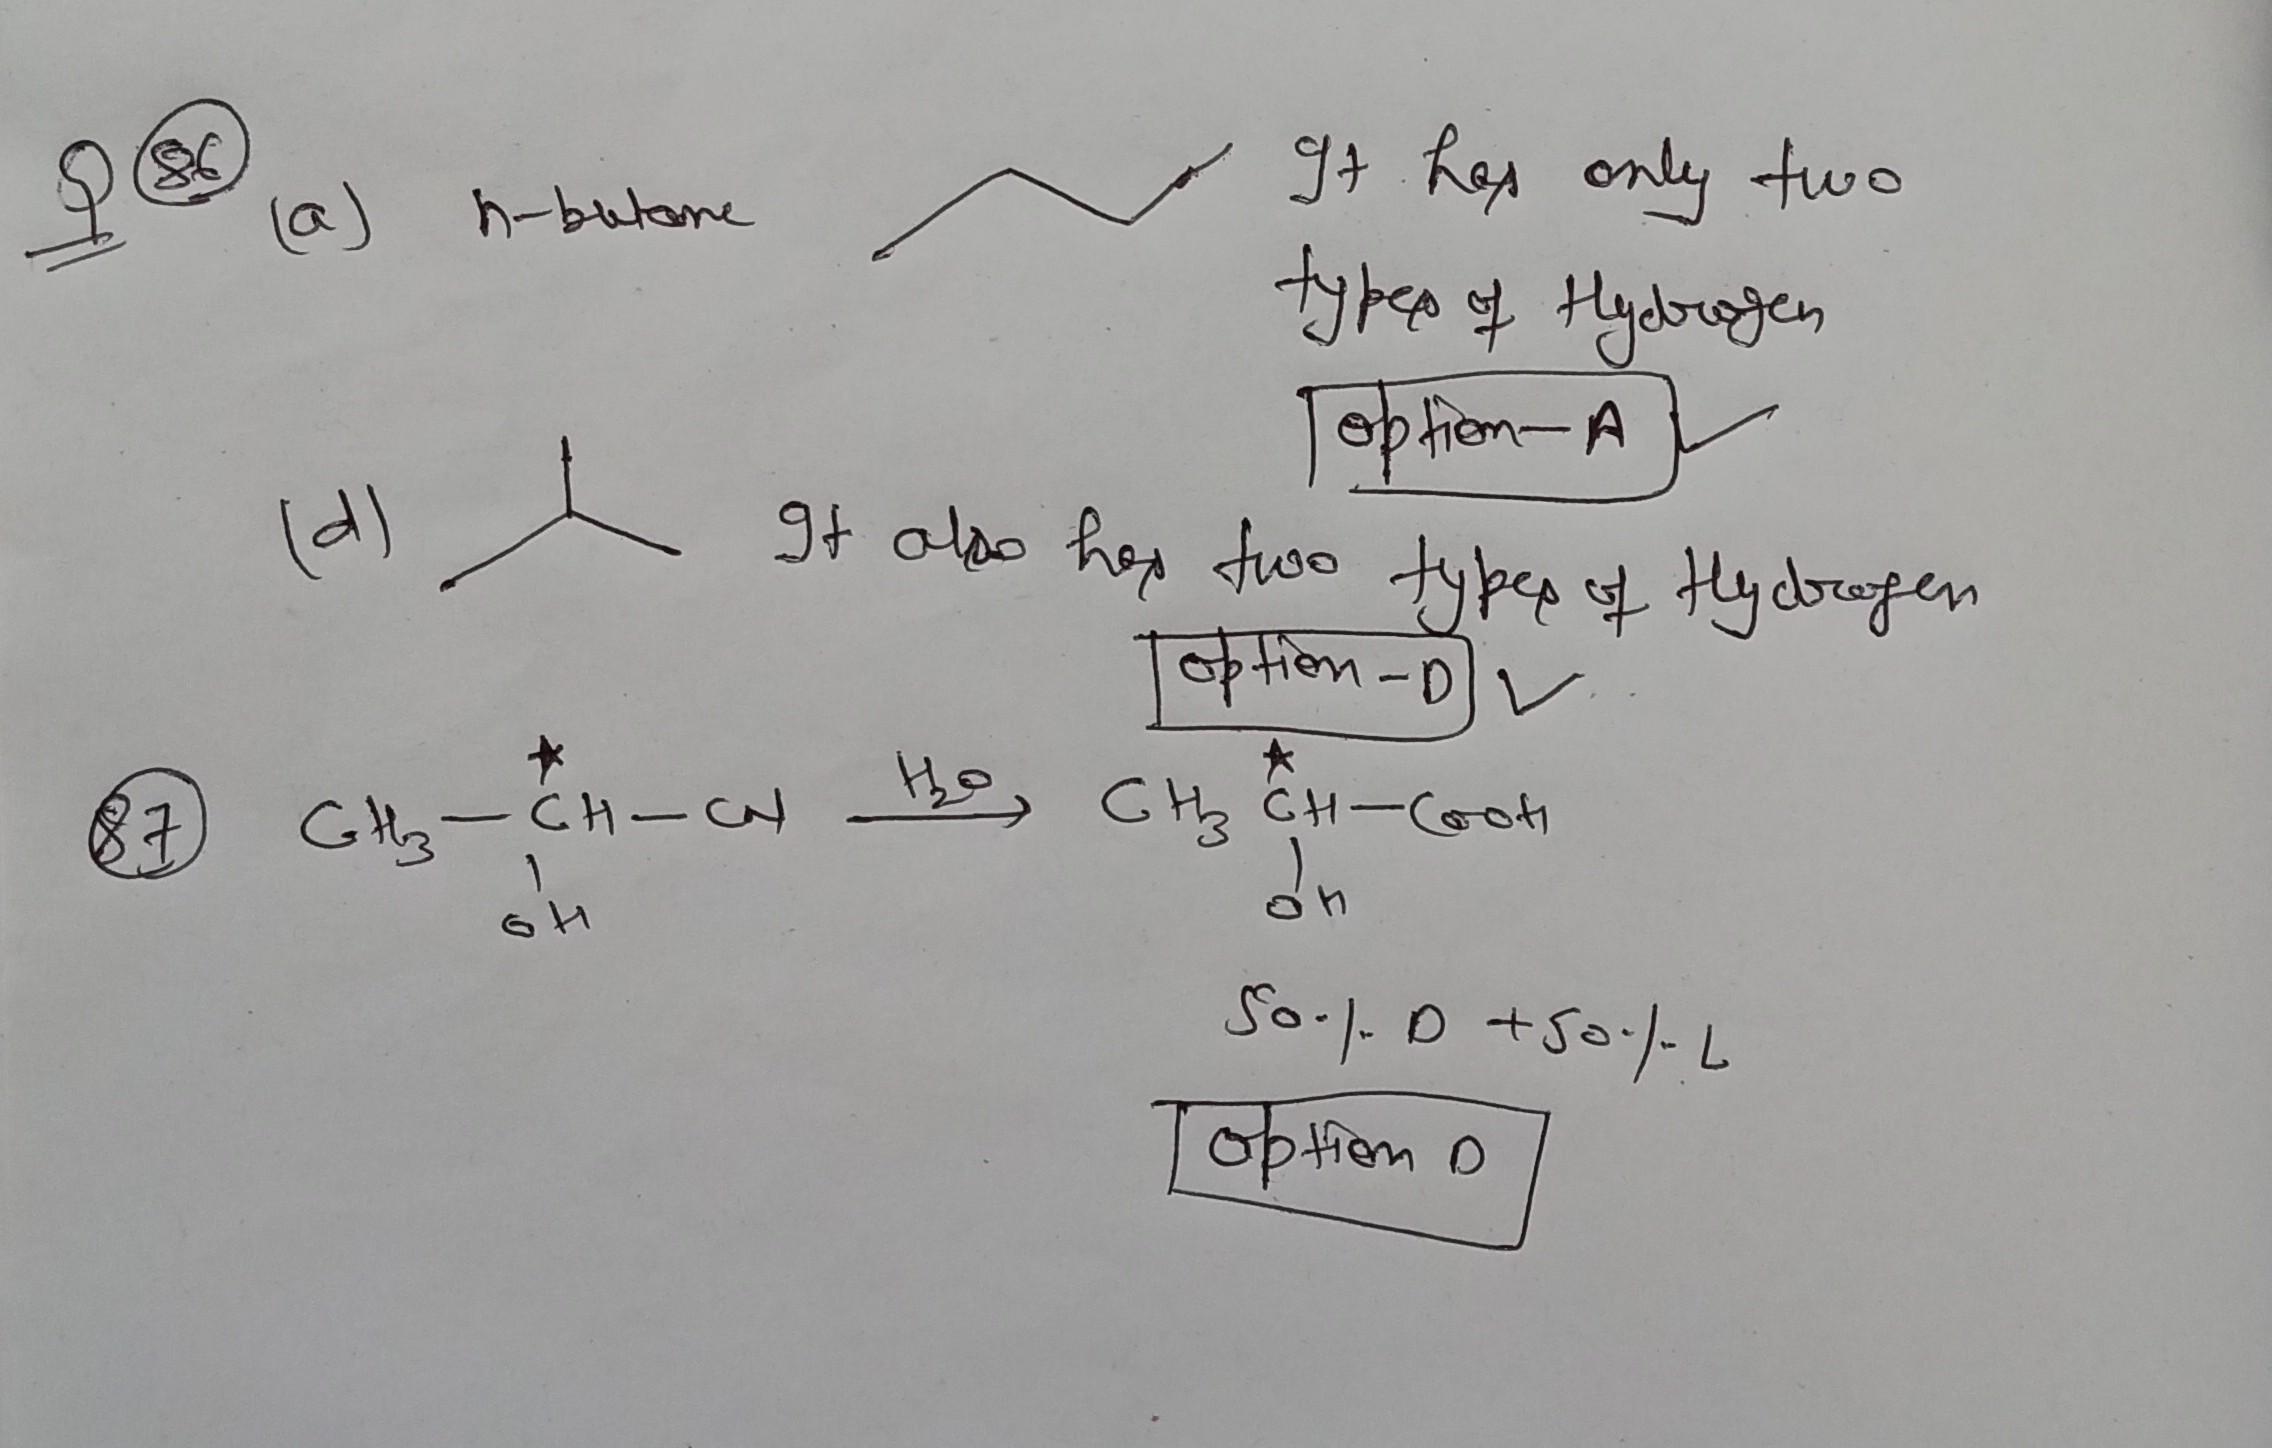 Q 86
(a) n-butane It has only two
types of Hydrogen
option-A
(d) It also has two types of Hydrogen
option-D
87 CH3-CH-CN H2O CH3 CH-COOH
OH OH
50% D +50% L
option D